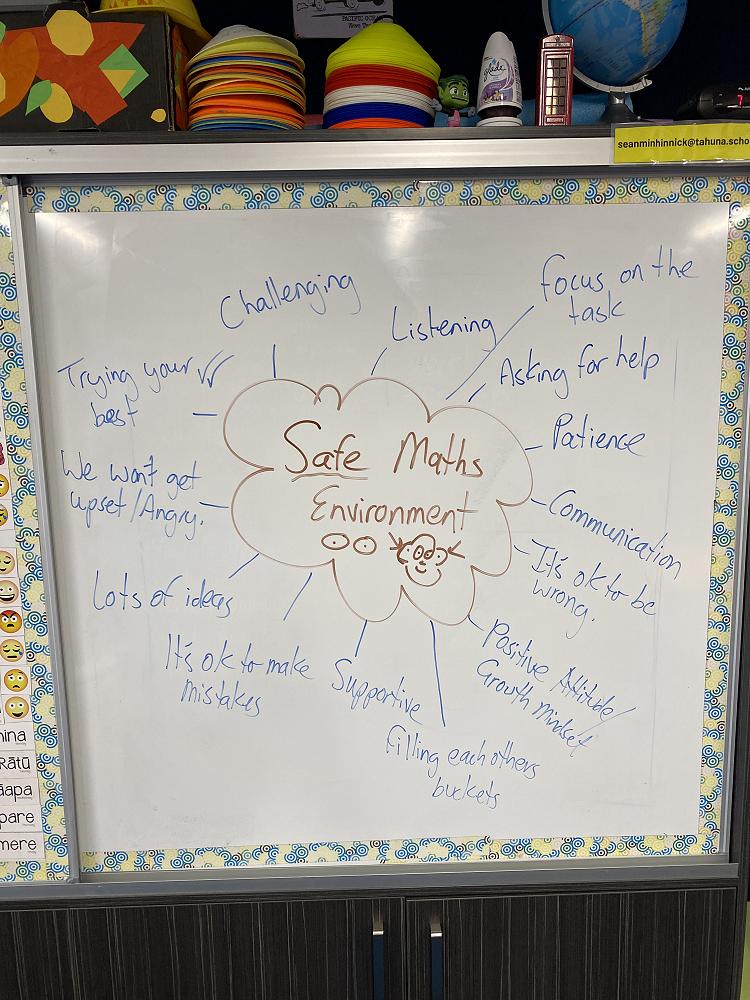 PACIFIC OCE
glade
seanminhinnick@tahuna.scho
Challenging
Listening
Focus on the
task
Asking for help
Trying your
best
Patience
Safe Maths
Environment
We won't get
upset/Angry.
Communication
It's ok to be
wrong.
Lots of ideas
It's ok to make
mistakes
Supportive
Positive Attitude/
Growth mindset
filling each others
buckets
hina
Rātū
āapa
pare
mere